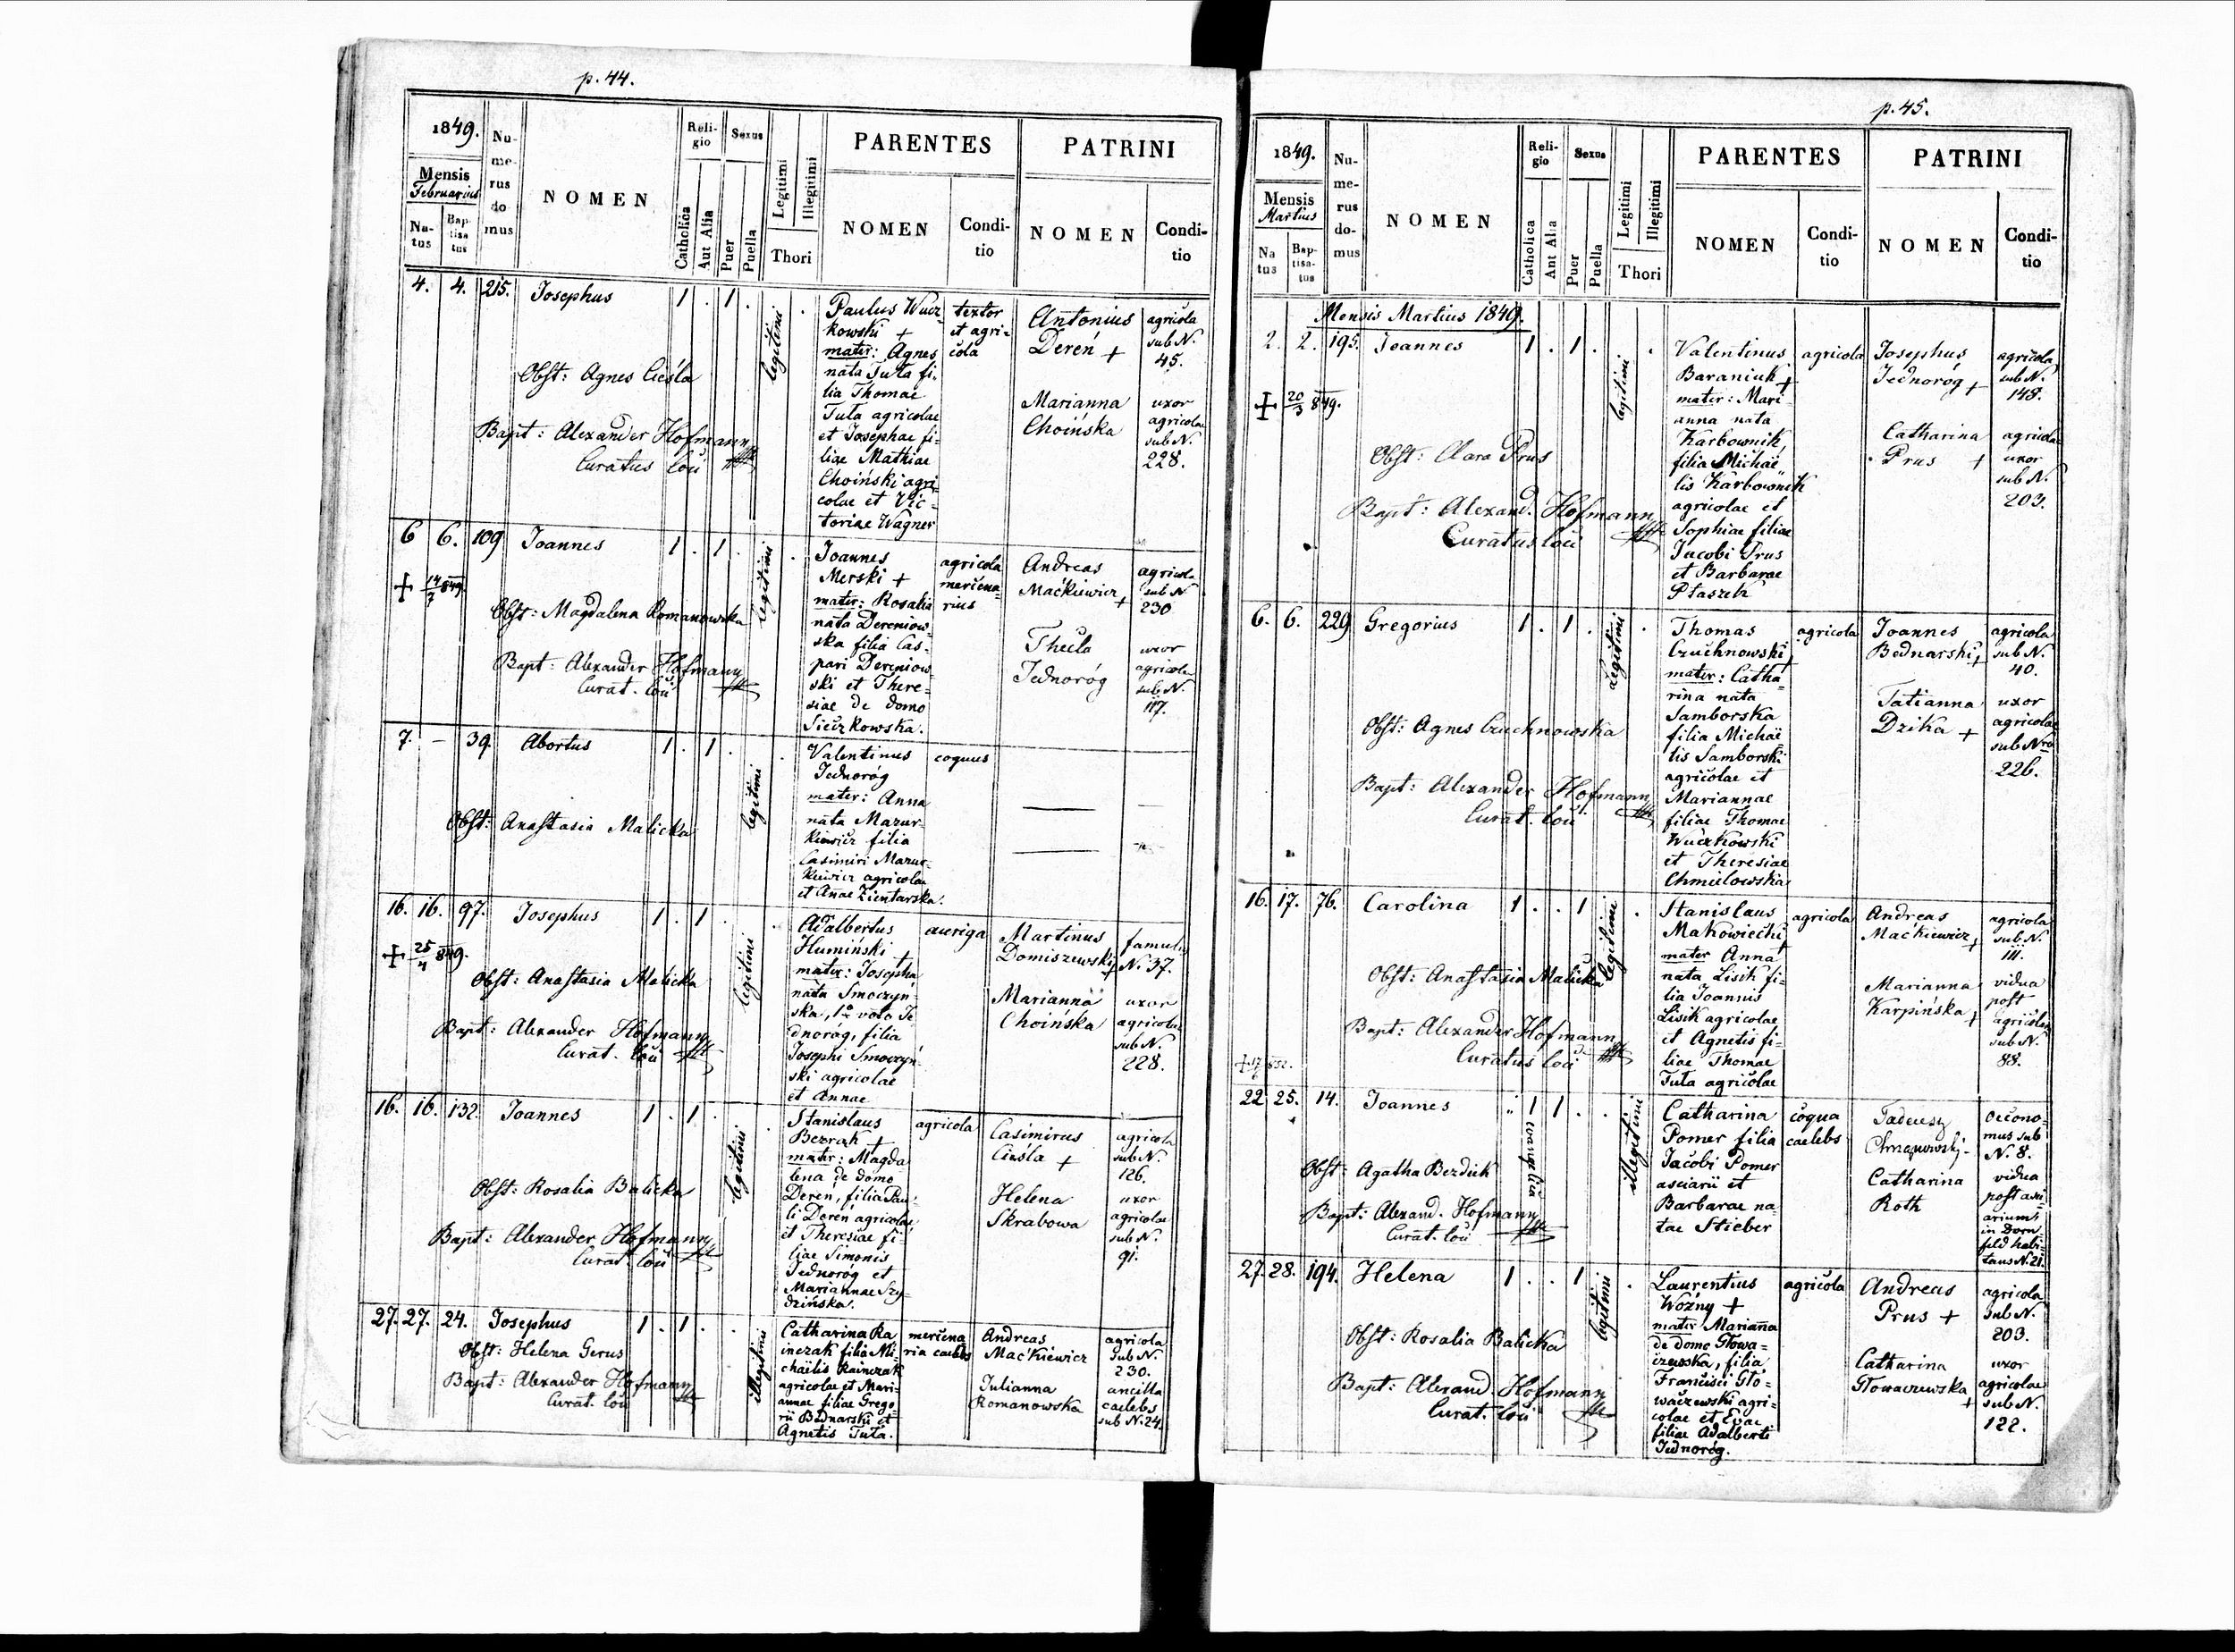 p. 44.
1849.
Mensis
Februarius
Na-
tus
Bap-
tisa
tus
Nu-
me-
rus
do-
mus
NOMEN
Reli-
gio
Catholica
Aut Alia
Sexus
Puer
Puella
Legitimi
Illegitimi
Thori
PARENTES
NOMEN
Condi-
tio
PATRINI
NOMEN
Condi-
tio
4. 4. 215. Josephus 1 . 1 . .
legitimi
Obst: Agnes Cieśla
Bapt: Alexander Hofmann
Curatus loci
Paulus Wucz-
kowski +
mater: Agnes
nata Tuta fi-
lia Thomae
Tuta agricolae
et Josephae fi-
liae Mathiae
Choiński agri-
colae et Vic-
toriae Wagner
textor
et agri-
cola
Antonius
Dereń +
agricola
sub N.
45.
Marianna
Choińska
uxor
agricolae
sub N.
228.
6 6. 109 Joannes 1 . 1 . .
+ 14/7 849
legitimi
Obst: Magdalena Romanowska
Bapt: Alexander Hofmann
Curat. loci
Joannes
Merski +
mater: Rosalia
nata Dereniow-
ska filia Cas-
pari Dereniow-
ski et There-
siae de domo
Sieczkowska.
agricola
mercena-
rius
Andreas
Maćkiewicz +
agricola
sub N
230
Thecla
Jednoróg
uxor
agricolae
sub N.
117.
7. – 39. Abortus 1 . 1 . .
legitimi
Obst: Anastasia Malicka
Valentinus
Jednoróg
mater: Anna
nata Mazur-
kiewicz filia
Casimiri Mazur-
kiewicz agricolae
et Annae Zientarska.
coquus
16. 16. 97. Josephus 1 . 1 . .
+ 25/4 849.
legitimi
Obst: Anastasia Malicka
Bapt: Alexander Hofmann
Curat. loci
Adalbertus
Humiński +
mater: Josepha
nata Smoczyń-
ska, 1o voto Je-
dnoróg, filia
Josephi Smoczyń-
ski agricolae
et Annae
auriga
Martinus
Domiszewski +
famulus
N. 37.
Marianna
Choińska
uxor
agricolae
sub N.
228.
16. 16. 132. Joannes 1 . 1 . .
legitimi
Obst: Rosalia Balicka
Bapt: Alexander Hofmann
Curat. loci
Stanislaus
Bezrąk +
mater: Magda-
lena de domo
Dereń, filia Pau-
li Dereń agricolae
et Theresiae fi-
liae Simonis
Jednoróg et
Mariannae Szy-
dzińska.
agricola
Casimirus
Cieśla +
agricola
sub N.
126.
Helena
Skrabowa
uxor
agricolae
sub N.
91.
27. 27. 24. Josephus 1 . 1 . .
illegitimi
Obst: Helena Gerus
Bapt: Alexander Hofmann
Curat. loci
Catharina Ra
inczak filia Mi-
chaëlis Rainczak
agricolae et Mari-
annae filiae Grego-
rii Bednarski et
Agnetis Tuta.
mercena
ria caelebs
Andreas
Maćkiewicz
agricola
sub N.
230.
Julianna
Romanowska
ancilla
caelebs
sub N. 24.
p. 45.
1849.
Mensis
Martius
Na
tus
Bap-
tisa-
tus
Nu-
me-
rus
do-
mus
NOMEN
Reli-
gio
Catholica
Aut Alia
Sexus
Puer
Puella
Legitimi
Illegitimi
Thori
PARENTES
NOMEN
Condi-
tio
PATRINI
NOMEN
Condi-
tio
Mensis Martius 1849.
2. 2. 195. Joannes 1 . 1 . .
+ 20/3 849.
legitimi
Obst: Clara Prus
Bapt: Alexand. Hofmann
Curatus loci
Valentinus
Baraniuk +
mater: Mari-
anna nata
Karbownik
filia Michaë-
lis Karbownik
agricolae et
Sophiae filiae
Jacobi Prus
et Barbarae
Ptaszek
agricola
Josephus
Jednoróg +
agricola
sub N.
148.
Catharina
Prus +
agricolae
uxor
sub N.
203.
6. 6. 229 Gregorius 1 . 1 . .
legitimi
Obst: Agnes Czuchnowska
Bapt: Alexander Hofmann
Curat. loci
Thomas
Czuchnowski +
mater: Catha-
rina nata
Samborska
filia Michaë-
lis Samborski
agricolae et
Mariannae
filiae Thomae
Wuczkowski
et Theresiae
Chmielowska
agricola
Joannes
Bednarski +
agricola
sub N.
40.
Tatianna
Dzika +
uxor
agricolae
sub Nro
226.
16. 17. 76. Carolina 1 . . 1 .
legitimi
Obst: Anastasia Malicka
Bapt: Alexander Hofmann
Curatus loci
Stanislaus
Makowiecki +
mater Anna
nata Lisik fi-
lia Joannis
Lisik agricolae
et Agnetis fi-
liae Thomae
Tuta agricolae
agricola
Andreas
Maćkiewicz +
agricola
sub N.
111.
Marianna
Karpińska +
vidua
post
agricolam
sub N.
88.
22 25. 14. Joannes 1 1 . .
evangelica
illegitimi
Obst: Agatha Berdick
Bapt: Alexand. Hofmann
Curat. loci
Catharina
Pomer filia
Jacobi Pomer
asciarii et
Barbarae na-
tae Stieber
coqua
caelebs
Tadeusz
Chrzanowski
oecono-
mus sub
N. 8.
Catharina
Roth
vidua
post asci-
arium
in Dorn-
feld habi-
tans N. 21.
27. 28. 194. Helena 1 . . 1 .
legitimi
Obst: Rosalia Balicka
Bapt: Alexand. Hofmann
Curat. loci
Laurentius
Woźny +
mater Marianna
de domo Głowa-
czewska, filia
Francisci Gło-
waczewski agri-
colae et Evae
filiae Adalberti
Jednoróg.
agricola
Andreas
Prus +
agricola
sub N.
203.
Catharina
Głowaczewska +
uxor
agricolae
sub N.
122.